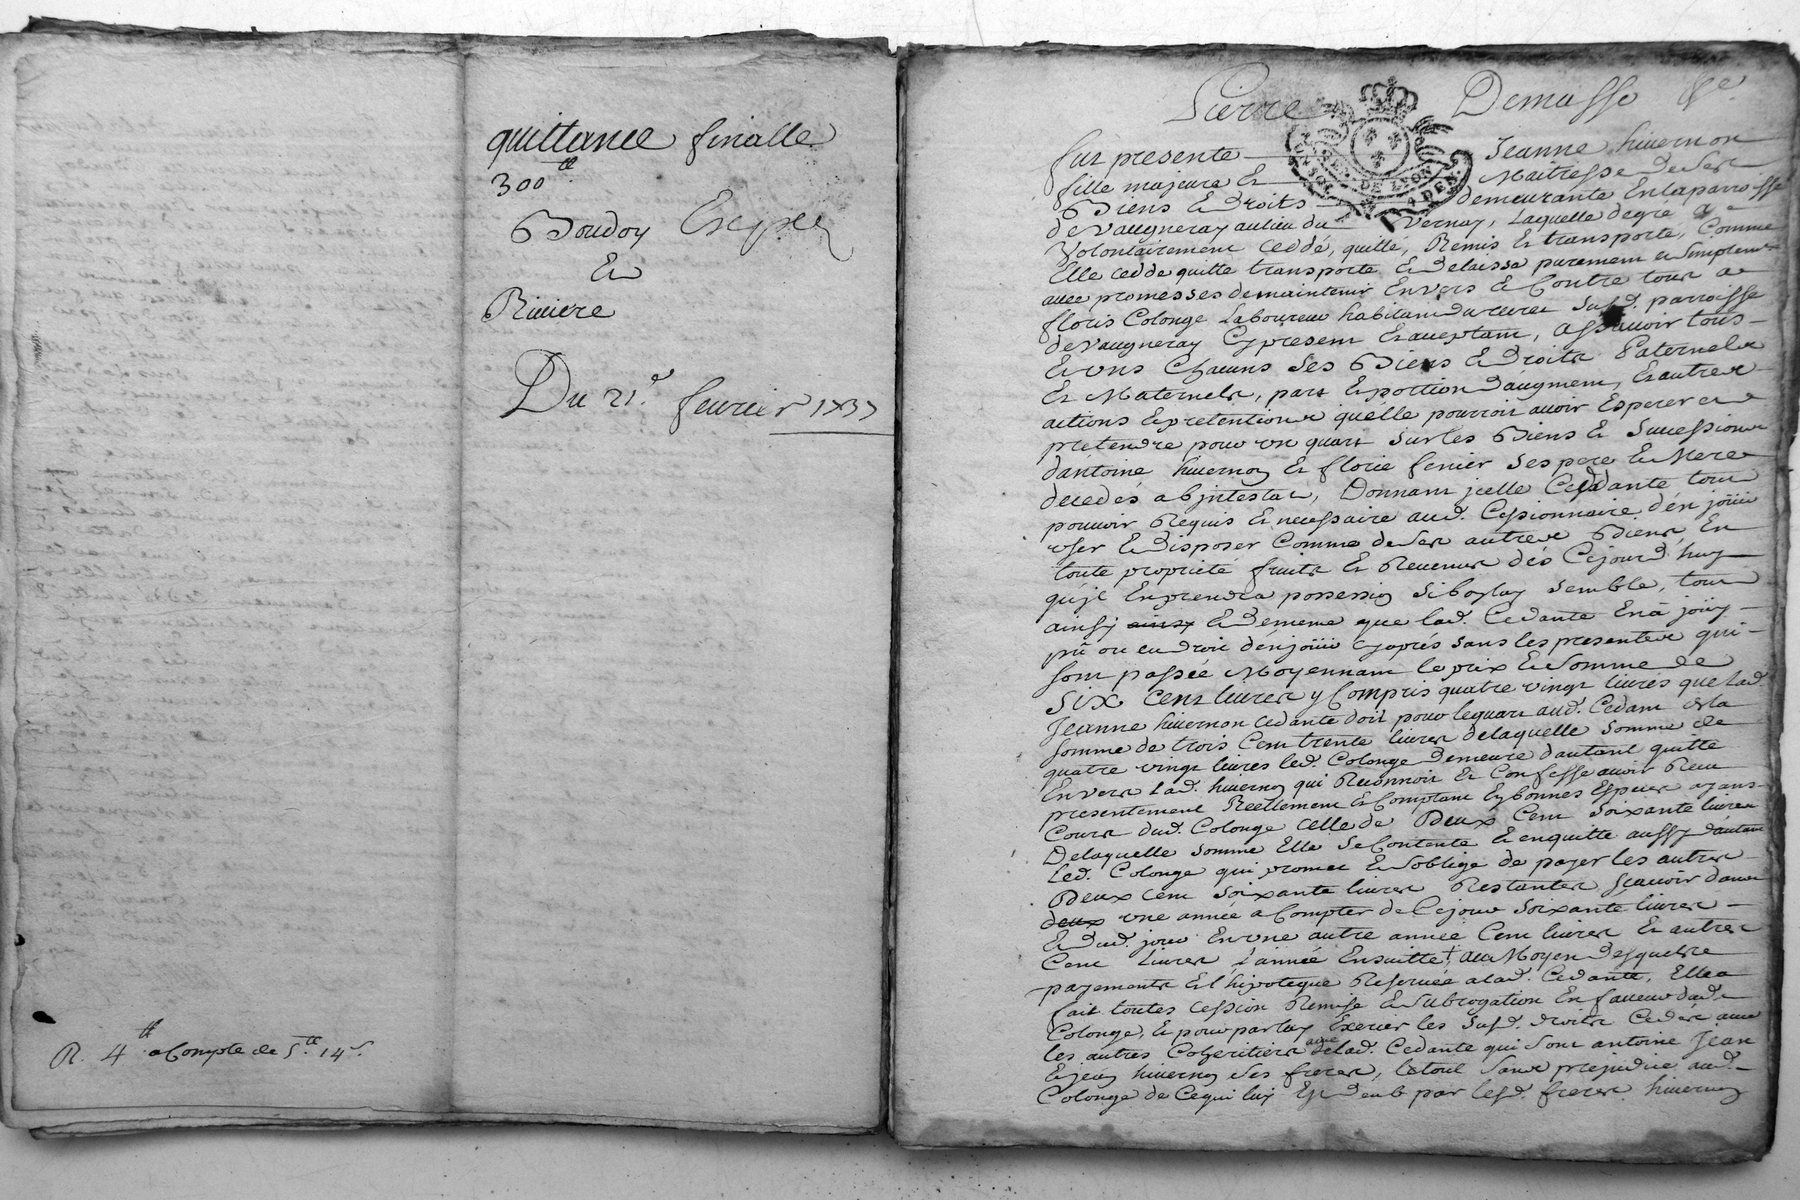 quittance finalle
300tt
Boudoy
Et
Riviere
Du 21e fevrier 1737
R. 4tt a Compte de 5tt 14s
Pierre Demasso &c
GEN. DE LYON
fut presente Jeanne hivernon
fille majeure Et Maitresse de Ses
Biens & Droits demeurante En la parroisse
de Vaugneray au lieu du Vernay, Laquelle de gré a
Volontairement ceddé, quitté, Remis Et transporté, Comme
Elle cedde quitte transporte Et Delaisse purement et Simplemt
avec promesses de maintenir Envers Et Contre tous a
floris Colonge Laboureur habitant au susd. parroisse
de Vaugneray Cy present Et aceptant, assavoir tous
Et uns Chacuns Ses Biens Et Droits Paternels
Et Maternels, part Et portion d'augment, Et autres
actions Et pretentions qu'elle pourroit avoir Esperer et
pretendre pour un quart Sur les Biens Et Successions
d'antoine hivernon Et florie ferrier Ses pere Et Mere
decedés abintestat, Donnant jcelle Ceddante tout
pouvoir Requis Et necessaire aud. Cessionnaire d'en joüir
User Et Disposer Comme de Ses autres Biens, En
toute proprieté fruits Et Revenus dés Cejourd'huy
qu'jl En prendra possession Si bon luy Semble, tout
ainsy ainsy Et De meme que lad. Cedante En a joüy
pû ou eu droit d'en joüir Cy aprés Sans les presentes qui
Sont passée Moyennant le prix Et Somme de
SIX Cent livres y Compris quatre vingt livres que lad.
Jeanne hivernon cedante doit pour le quart aud. Cedant de la
Somme de trois Cent trente livres de laquelle Somme de
quatre vingt livres led. Colonge Demeure d'autant quitte
Envers Lad. hivernon qui Reconnoit Et Confesse avoir Reçu
presentement Reellement Et Comptant En bonnes Especes ayans
Cours dud. Colonge celle de Deux Cent Soixante livres
De laquelle Somme Elle Se Contente Et en quitte aussy d'autant
led. Colonge qui promet Et S'oblige de payer les autres
Deux Cent Soixante livres Restantes, Sçavoir dans
deux une année a Compter de Ce jour Soixante livres
Et dud. jour En une autre année Cent livres Et autres
Cent Livres L'année Ensuitte, Au Moyen Desquels
payements Et l'hipoteque Reservée a lad. Cedante, Elle a
fait toutes Cession Remise Et Subrogation En faveur dud.
Colonge, Et pour par luy Exercer les Susd. droits Cedés avec
les autres Coheritiers avec de lad. Cedante qui Sont antoine Jean
Et jean hivernon Ses freres, le tout Sans prejudice aud.
Colonge de Ce qui luy Est Deub par lesd. freres hivernon